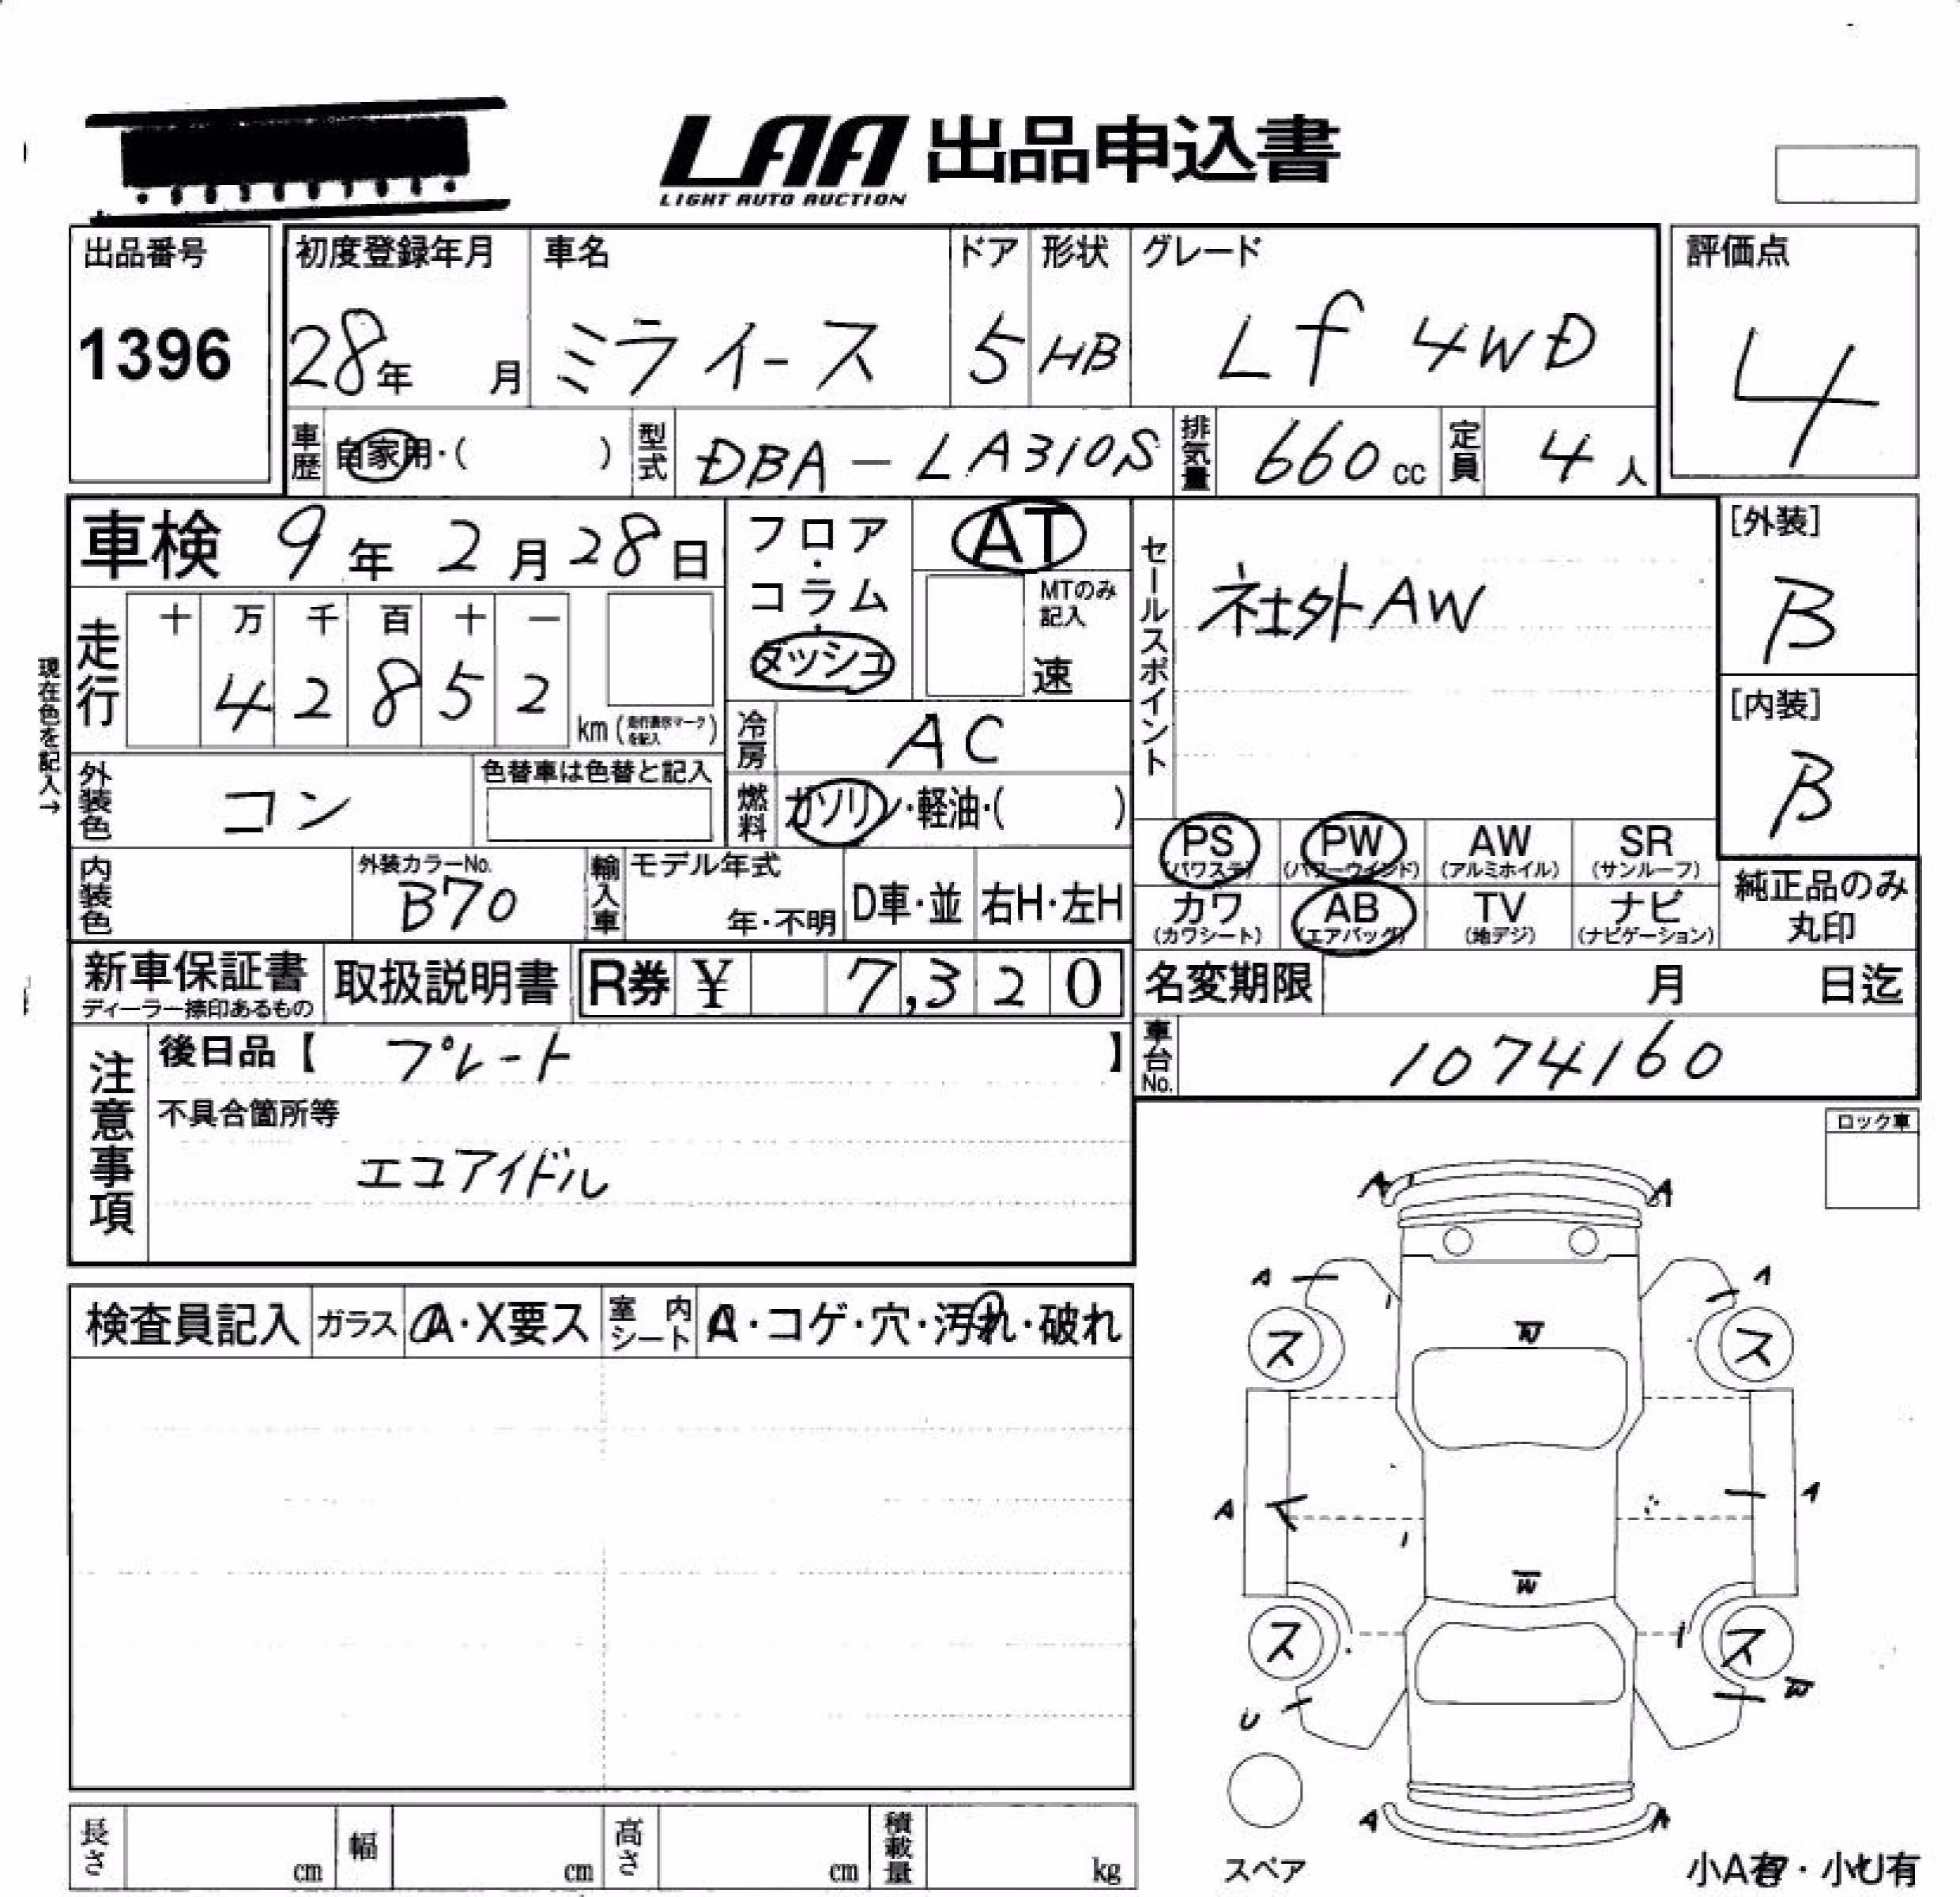 LAA 出品申込書
LIGHT AUTO AUCTION
出品番号 初度登録年月 車名 ドア 形状 グレード 評価点
1396 28年 月 ミライース 5 HB Lf 4WD 4
車歴 自家用・( ) 型式 DBA-LA310S 排気量 660cc 定員 4人
車検 9年2月28日 フロア・コラム・ダッシュ AT セールスポイント [外装]
MTのみ記入 速 社外AW B
走行 十 万 千 百 十 一
4 2 8 5 2 km ( ) [内装]
現在色を記入→
冷房 AC B
外装色 コン 色替車は色替と記入 燃料 ガソリン・軽油・( )
PS PW AW SR
(パワステ) (パワーウインド) (アルミホイル) (サンルーフ)
内装色 外装カラーNo. 輸入車 モデル年式
B70 年・不明 D車・並 右H・左H
カワ AB TV ナビ 純正品のみ丸印
(カワシート) (エアバッグ) (地デジ) (ナビゲーション)
新車保証書 取扱説明書 R券 ¥ 7,320 名変期限 月 日迄
ディーラー捺印あるもの
注意事項 後日品【 プレート 】 車台No. 1074160
不具合箇所等
エコアイドル
ロック車
A A
A A
検査員記入 ガラス A・X要ス 室内シート A・コゲ・穴・汚れ・破れ
W
ス ス
A A
W
ス ス
U W
A A
スペア
長さ cm 幅 cm 高さ cm 積載量 kg
小A有・小U有